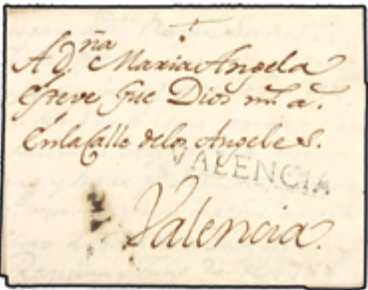 A D.ña Maria Angela
Esteve gue Dios m.s a.s
En la Calle delos Angeles.
VALENCIA
Valencia.